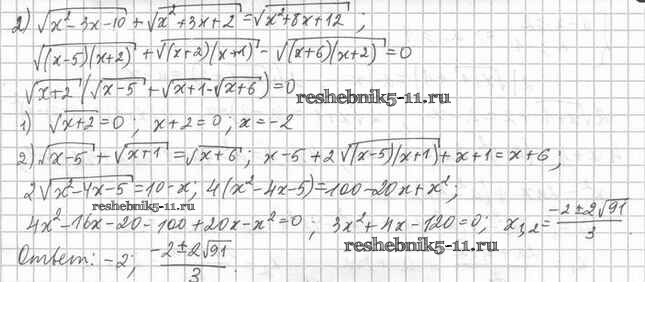 2) √(x²-3x-10) + √(x²+3x+2) = √(x²+8x+12) ;
√((x-5)(x+2)) + √((x+2)(x+1)) - √((x+6)(x+2)) = 0
√(x+2) (√(x-5) + √(x+1) - √(x+6)) = 0
reshebnik5-11.ru
1) √(x+2) = 0 ; x+2=0 ; x=-2
2) √(x-5) + √(x+1) = √(x+6) ; x-5+2√((x-5)(x+1)) + x+1 = x+6 ;
2√(x²-4x-5) = 10-x ; 4(x²-4x-5) = 100-20x+x² ;
reshebnik5-11.ru
4x²-16x-20-100+20x-x²=0 ; 3x²+4x-120=0 ; x₁,₂ = (-2±2√91)/3 .
reshebnik5-11.ru
Ответ: -2; (-2±2√91)/3 .